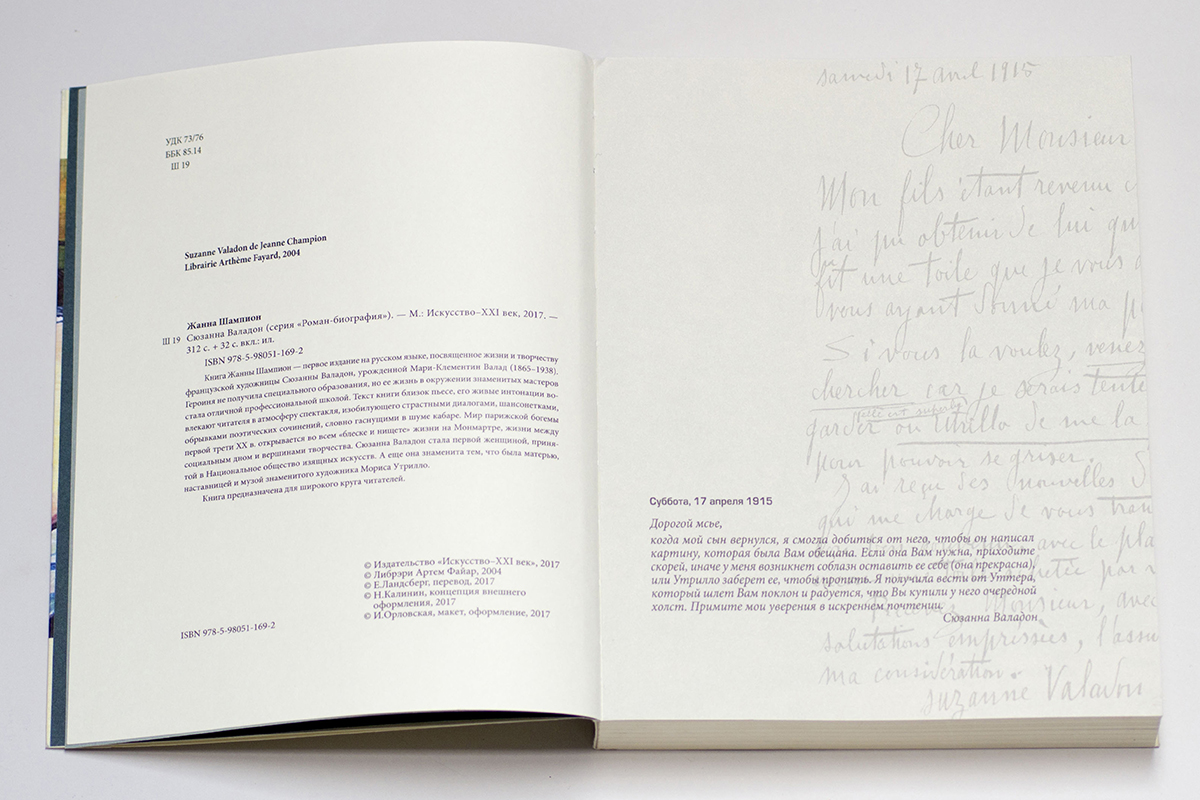 УДК 73/76
ББК 85.14
Ш 19
Suzanne Valadon de Jeanne Champion
Librairie Arthème Fayard, 2004
Жанна Шампион
Ш 19 Сюзанна Валадон (серия «Роман-биография»). — М.: Искусство–XXI век, 2017. —
312 с. + 32 с. вкл.: ил.
ISBN 978-5-98051-169-2
Книга Жанны Шампион — первое издание на русском языке, посвященное жизни и творчеству
французской художницы Сюзанны Валадон, урожденной Мари-Клементин Валад (1865–1938).
Героиня не получила специального образования, но ее жизнь в окружении знаменитых мастеров
стала отличной профессиональной школой. Текст книги близок пьесе, его живые интонации во-
влекают читателя в атмосферу спектакля, изобилующего страстными диалогами, шансонетками,
обрывками поэтических сочинений, словно гаснущими в шуме кабаре. Мир парижской богемы
первой трети XX в. открывается во всем «блеске и нищете» жизни на Монмартре, жизни между
социальным дном и вершинами творчества. Сюзанна Валадон стала первой женщиной, приня-
той в Национальное общество изящных искусств. А еще она знаменита тем, что была матерью,
наставницей и музой знаменитого художника Мориса Утрилло.
Книга предназначена для широкого круга читателей.
© Издательство «Искусство–XXI век», 2017
© Либрэри Артем Файар, 2004
© Е.Ландсберг, перевод, 2017
© Н.Калинин, концепция внешнего
оформления, 2017
© И.Орловская, макет, оформление, 2017
ISBN 978-5-98051-169-2
samedi 17 avril 1915
Cher Monsieur
Mon fils étant revenu
j'ai pu obtenir de lui qu
fit une toile que je vous
vous ayant donné ma p
Si vous la voulez, venez
chercher car je serais tente
(elle est superbe)
garder ou Utrillo de me la
pour pouvoir se griser.
J'ai reçu des nouvelles
qui me charge de vous tran
avec le pla
achetée par
Monsieur, avec
salutations empressées, l'assu
ma considération.
Suzanne Valadon
Суббота, 17 апреля 1915
Дорогой мсье,
когда мой сын вернулся, я смогла добиться от него, чтобы он написал
картину, которая была Вам обещана. Если она Вам нужна, приходите
скорей, иначе у меня возникнет соблазн оставить ее себе (она прекрасна),
или Утрилло заберет ее, чтобы пропить. Я получила вести от Уттера,
который шлет Вам поклон и радуется, что Вы купили у него очередной
холст. Примите мои уверения в искреннем почтении.
Сюзанна Валадон